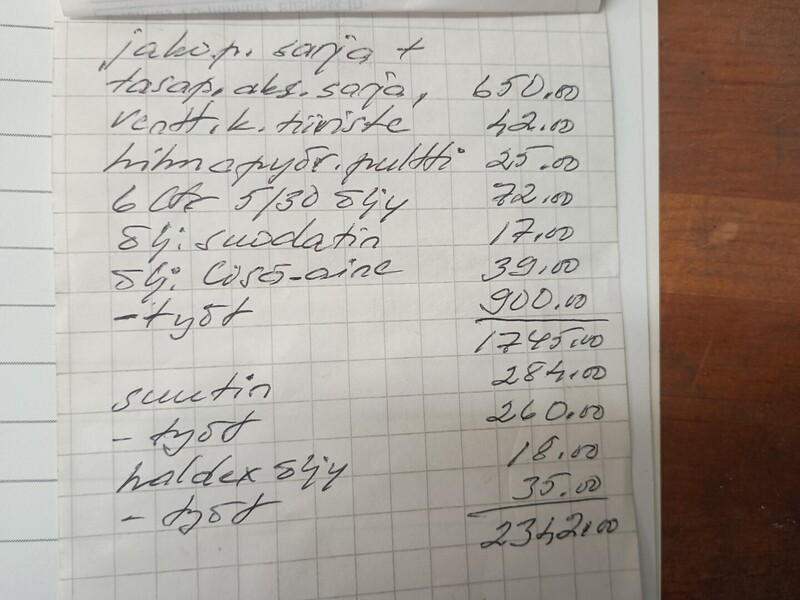 jakop. sarja +
tasap.aks. sarja, 650.00
Ventt.k. tiiviste 42.00
hihnapyör. pultti 25.00
6 ltr 5/30 öljy 72.00
ölj. suodatin 17.00
ölj. lisä-aine 39.00
- työt 900.00
1745.00
suutin 284.00
- työt 260.00
haldex öljy 18.00
- työt 35.00
2342.00